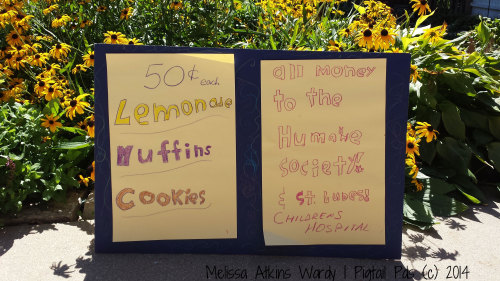 50¢ each
Lemonade
Muffins
Cookies
all money
to the
Humane
society
& St. Judes!
CHILDRENS
HOSPITAL
Melissa Atkins Wardy | Pigtail Pals (c) 2014